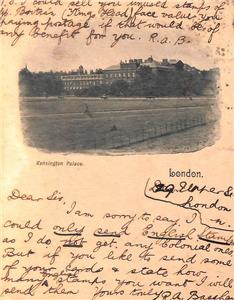 I could sell you unused stamps of
Gt Britain (King's Head) face value, you
paying postage if that would be of
any benefit for you. R.a.B.
Kensington Palace.
London.
Upper
London
Dear Sir,
I am sorry to say, I
could only send English Stamps
so I do not get any Colonial ones
But if you like to send some
of your cards & state how
many stamps you want I will
send them Yours truly R.A.